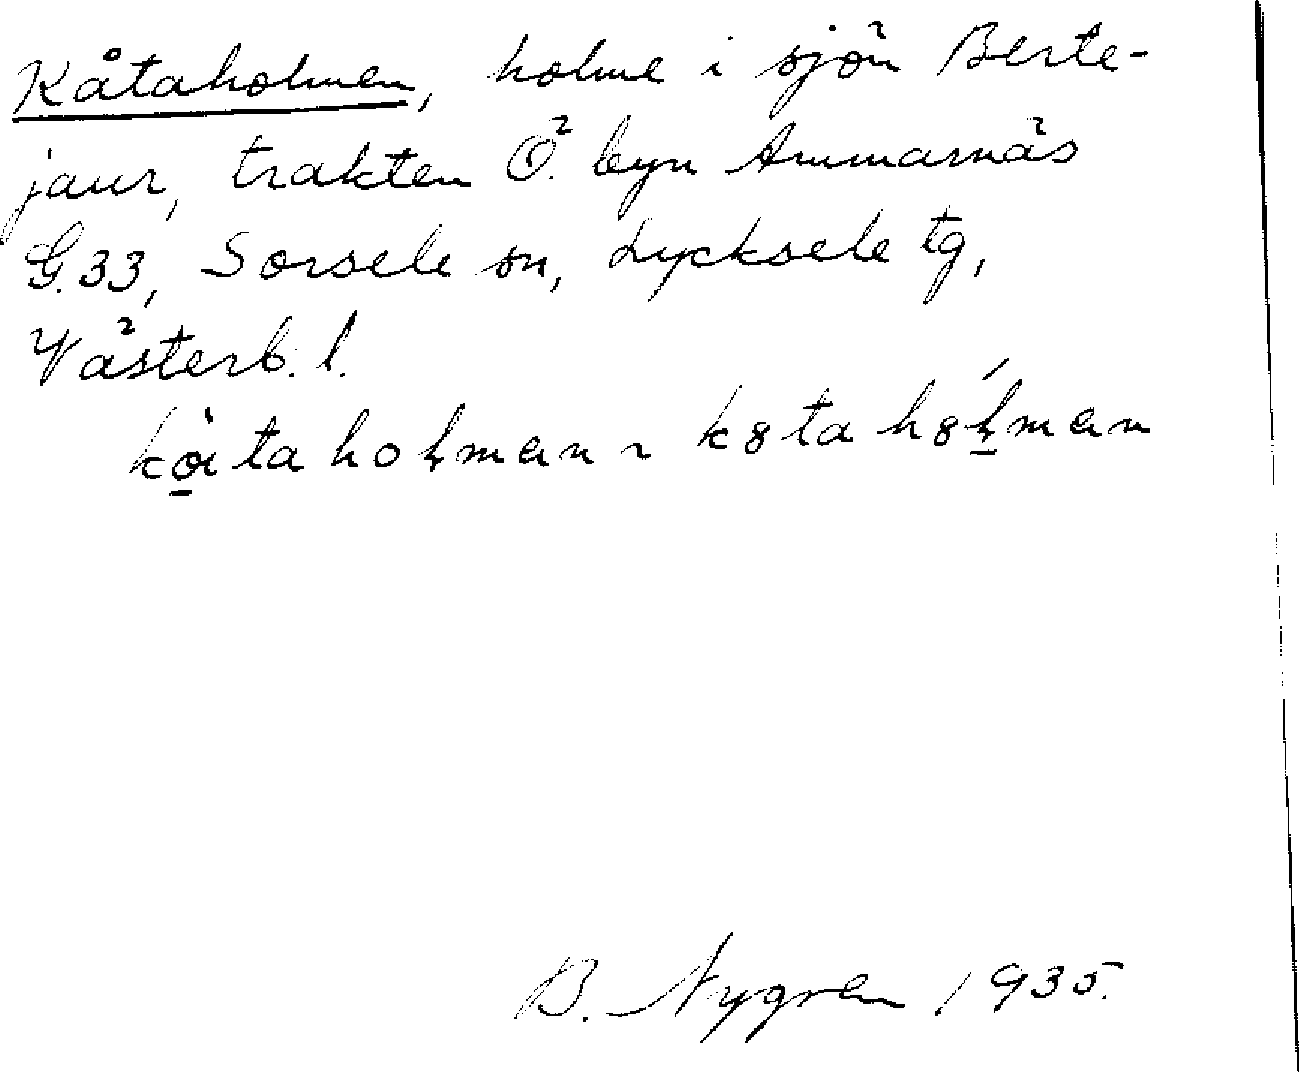 Kåtaholmen, holme i sjön Berte-
jaur, trakten Ö. byn Ammarnäs
G.33, Sorsele sn, Lycksele tg,
Västerb. l.
kɷ̀taholmɐn ~ k8tah8́lmɐn
B. Nygren 1935.